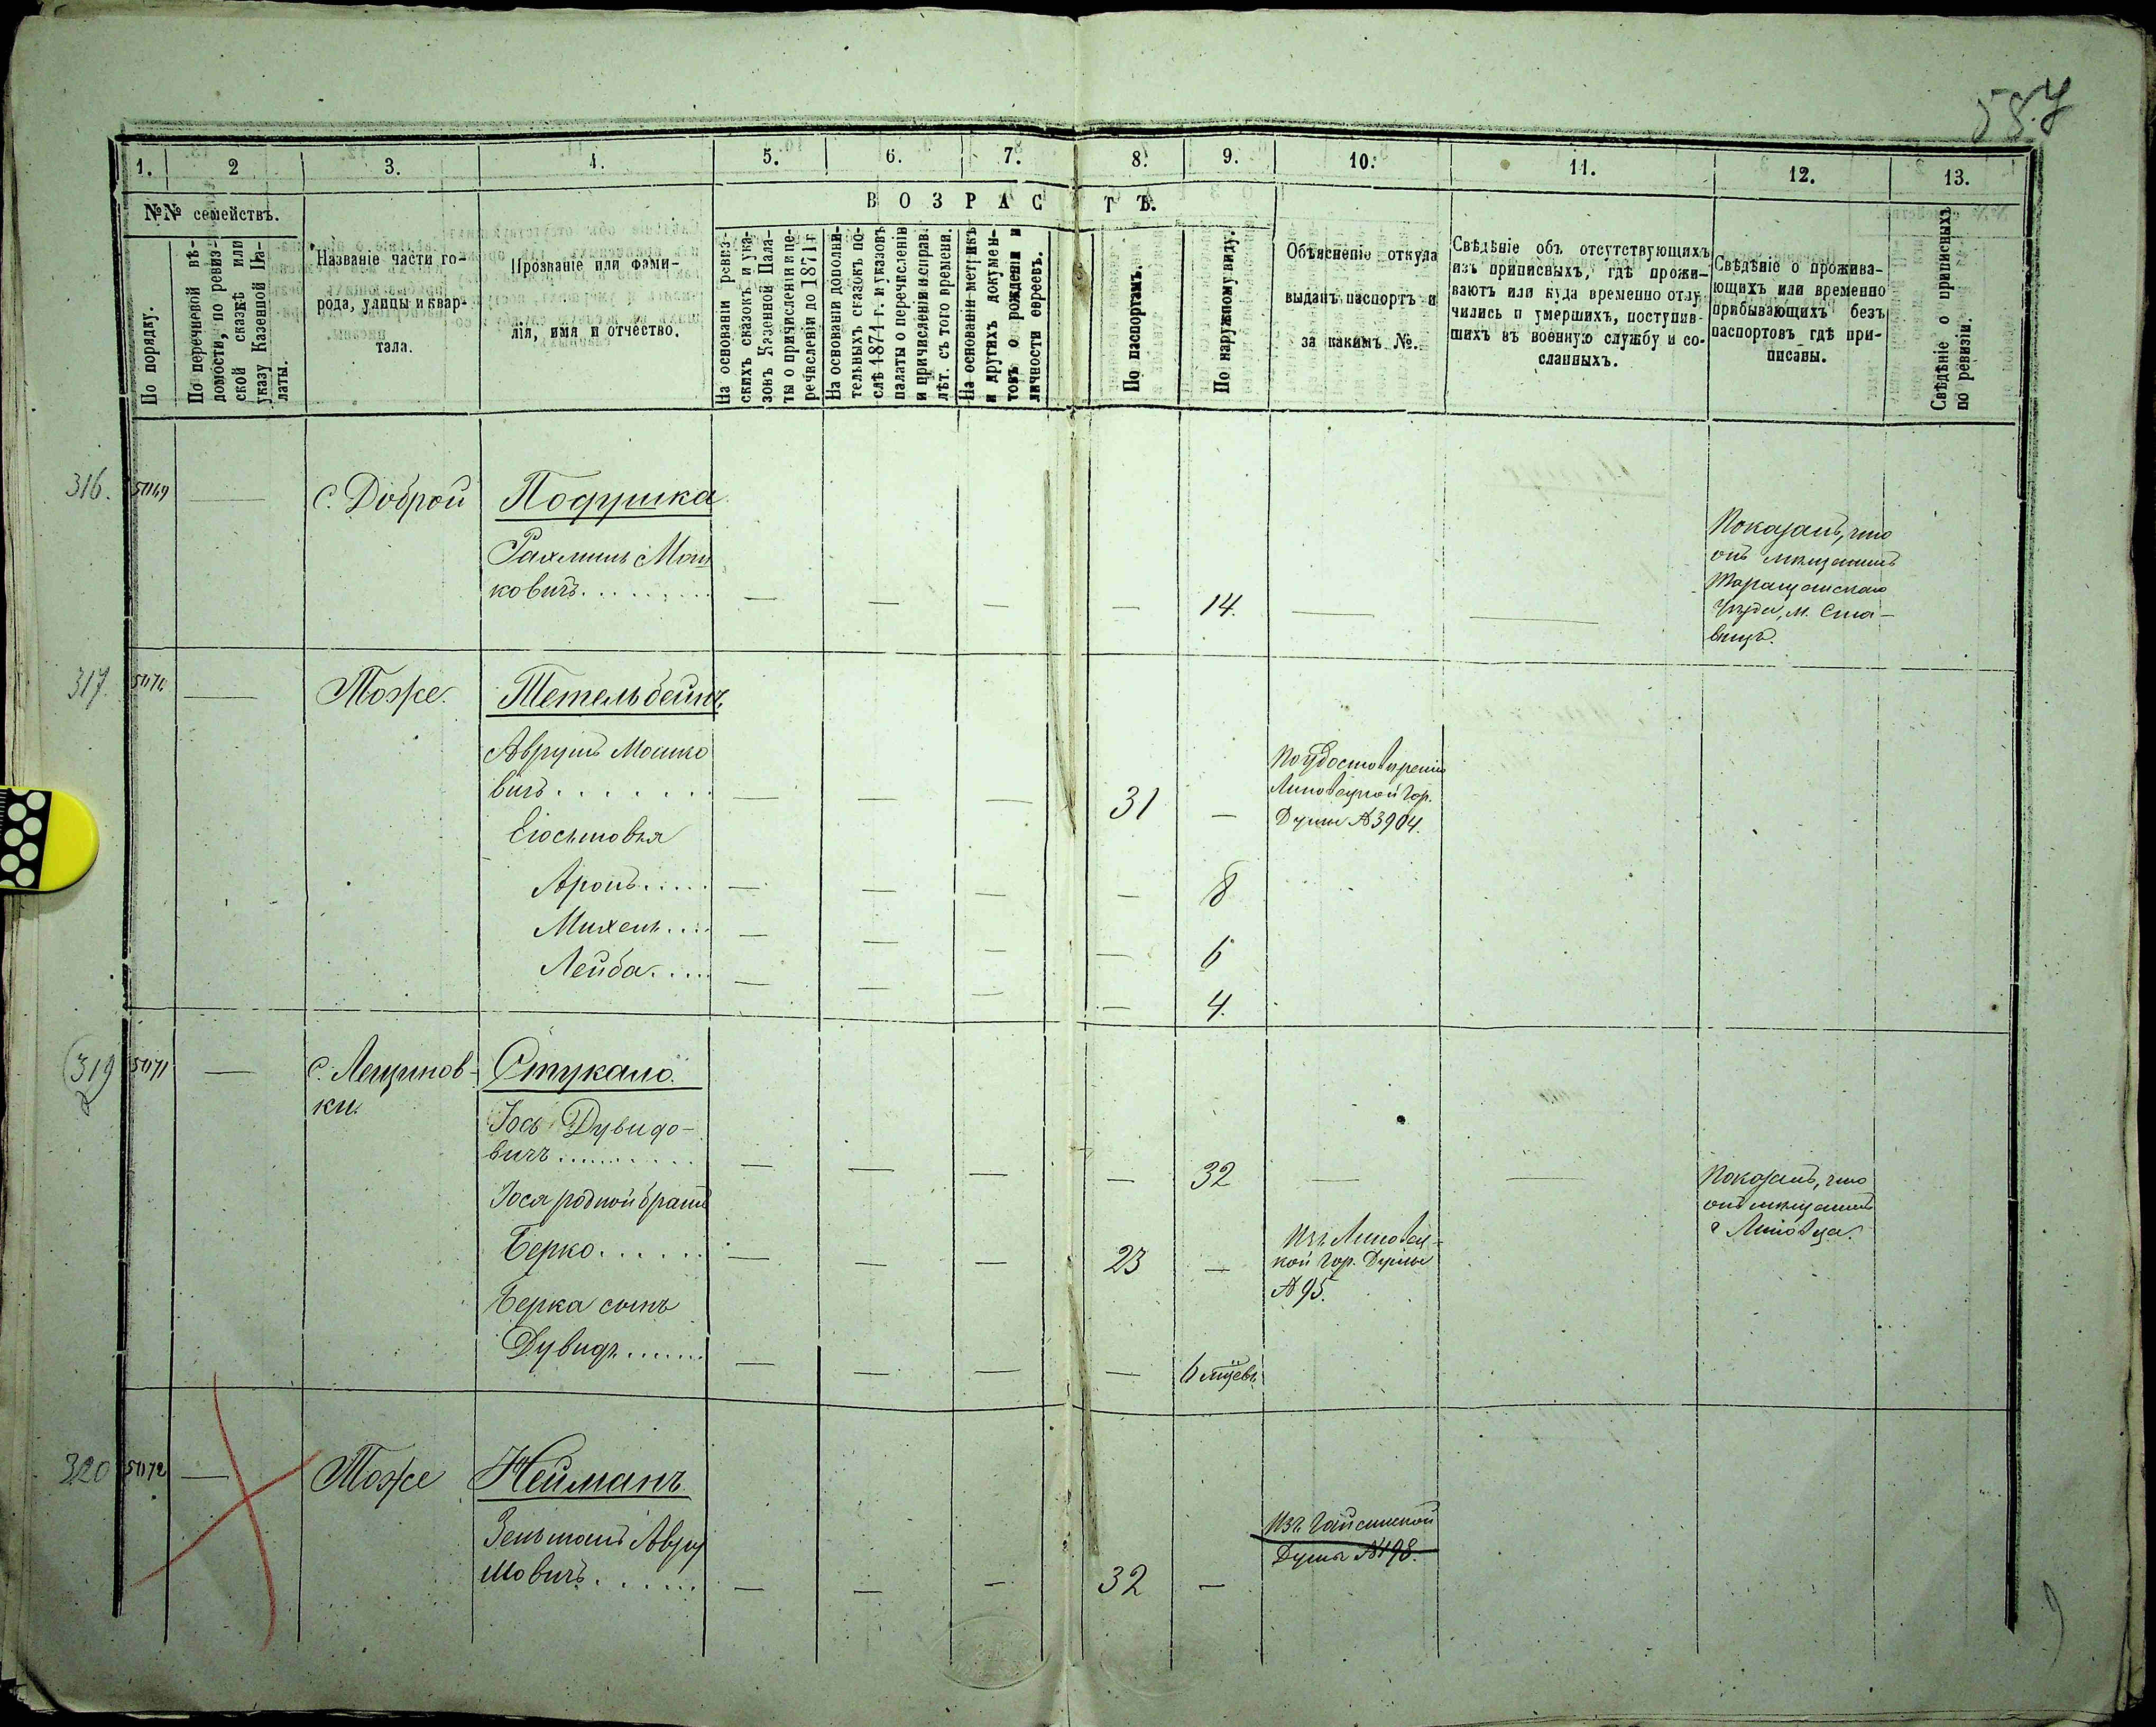 587
1. 2 3. 4. 5. 6. 7. 8. 9. 10. 11. 12. 13.
№№ семействъ.
В О З Р А С Т Ъ.
По порядку.
По перечневой вѣ-
домости, по ревиз-
ской сказкѣ или
указу Казенной Па-
латы.
Названіе части го-
рода, улицы и квар-
тала.
Прозваніе или фами-
лія, имя и отчество.
На основаніи ревиз-
скихъ сказокъ и ука-
зовъ Казенной Пала-
ты о причисленіи и пе-
речисленіи до 1874 г.
На основаніи дополни-
тельныхъ сказокъ по-
слѣ 1874 г. и указовъ
палаты о перечисленіи
и причисленіи и справ.
лѣт. съ того времени.
На основаніи метрикъ
и другихъ докумен-
товъ о рожденіи и
личности евреевъ.
По паспортамъ.
По наружному виду.
Объясненіе откуда
выданъ паспортъ и
за какимъ №.
Свѣдѣніе объ отсутствующихъ
изъ приписныхъ, гдѣ прожи-
ваютъ или куда временно отлу-
чились и умершихъ, поступив-
шихъ въ военную службу и со-
сланныхъ.
Свѣдѣніе о прожива-
ющихъ или временно
прибывающихъ безъ
паспортовъ гдѣ при-
писаны.
Свѣдѣніе о приписныхъ
по ревизіи.
316. 5769 — с. Доброй Подушка
Рахмиль Мош
ковичъ — — — — 14. — —
Показалъ, что
онъ мѣщанинъ
Таращанскаго
уѣзда, м. Ста-
вищъ.
317. — Тоже. Тетельбеймъ
Аврумъ Мошко
вичъ — — — 31 —
По удостовѣренію
Липовецкой Гор.
Думы №3904.
сыновья
Аронъ — — — — 8
Михель — — — — 6
Лейба — — — — 4.
319 5771 — с. Лещинов-
ки.
Стукало.
Іось Дувидо-
вичъ — — — — 32 — —
Показалъ, что
онъ мѣщанинъ
г Липовца.
Іося родной братъ
Берко — — — 23 —
Изъ Липовец-
кой Гор. Думы
№ 95.
Берка сынъ
Дувидъ — — — — 6 мѣсяцевъ
320 5772 — Тоже Нейманъ
Зельманъ Авру
мовичъ — — — 32 —
Изъ Гайсинской
Думы №498.